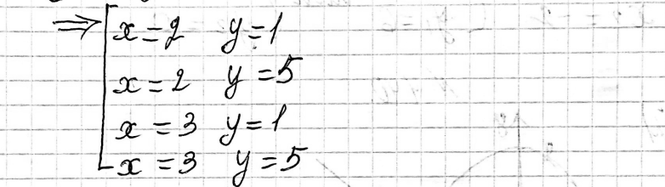 ⇒ [ x = 2 y = 1
x = 2 y = 5
x = 3 y = 1
x = 3 y = 5